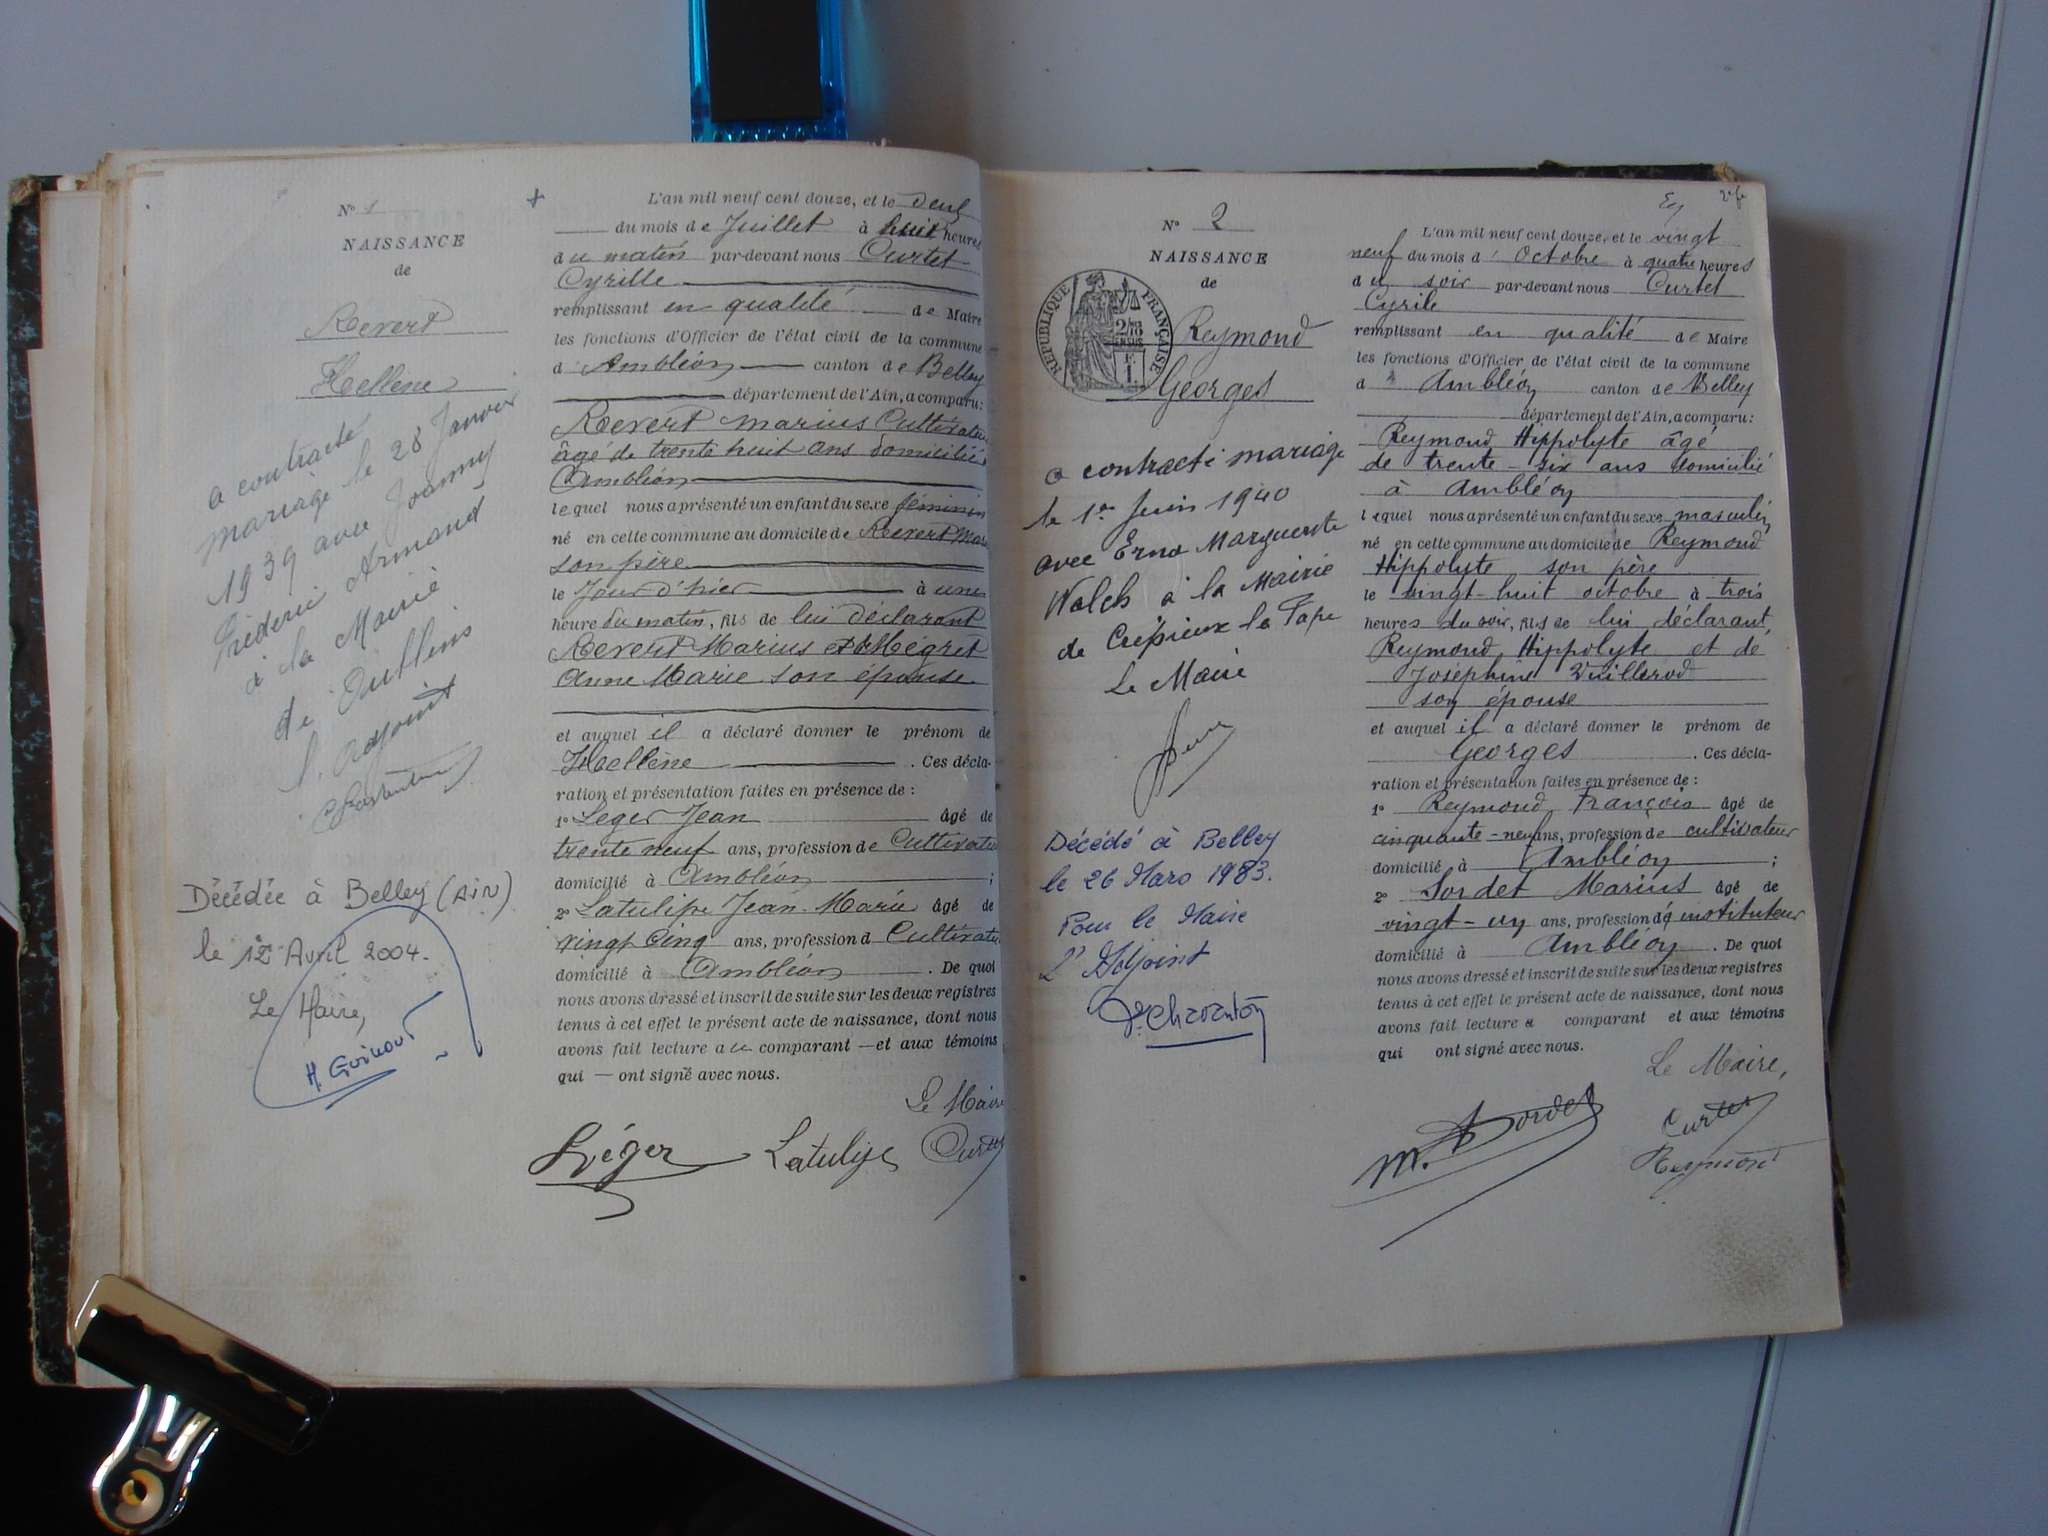 N° 1
NAISSANCE
de
Revert
Hellène
a contracté
mariage le 28 Janvier
1939 avec Joanny
Fréderic Armand
à la Mairie
de Oullins
l'Adjoint
Décédée à Belley (AIN)
le 12 Avril 2004.
Le Maire,
H. Guinard
L'an mil neuf cent douze, et le deux
du mois de Juillet à huit heures
du matin par-devant nous Curtet
Cyrille
remplissant en qualité de Maire
les fonctions d'Officier de l'état civil de la commune
d'Ambléon canton de Belley
département de l'Ain, a comparu:
Revert Marius Cultivateur
âgé de trente huit ans domicilié
Ambléon
lequel nous a présenté un enfant du sexe féminin
né en cette commune au domicile de Revert Mari
son père
le Jour d'hier à une
heure du matin, fils de lui déclarant
Revert Marius et de Mégret
Anne Marie son épouse
et auquel il a déclaré donner le prénom de
Hellène . Ces décla-
ration et présentation faites en présence de :
1° Leger Jean âgé de
trente neuf ans, profession de Cultivateu
domicilié à Ambléon ;
2° Latulipe Jean Marie âgé de
vingt cinq ans, profession d Cultivateu
domicilié à Ambléon . De quoi
nous avons dressé et inscrit de suite sur les deux registres
tenus à cet effet le présent acte de naissance, dont nous
avons fait lecture au comparant et aux témoins
qui ont signé avec nous.
Le Maire
Léger Latulipe Curtet
N° 2
NAISSANCE
de
RÉPUBLIQUE FRANÇAISE
Reymond
Georges
a contracté mariage
le 1er Juin 1940
avec Erna Marguerite
Walch à la Mairie
de Crépieux la Pape
Le Maire
Décédé à Belley
le 26 Mars 1983.
Pour le Maire
L'Adjoint
Charenton
L'an mil neuf cent douze, et le vingt
neuf du mois d'Octobre à quatre heures
du soir par-devant nous Curtet
Cyrile
remplissant en qualité de Maire
les fonctions d'Officier de l'état civil de la commune
d'Ambléon canton de Belley
département de l'Ain, a comparu:
Reymond Hippolyte âgé
de trente-six ans domicilié
à Ambléon
lequel nous a présenté un enfant du sexe masculin
né en cette commune au domicile de Reymond
Hippolyte son père
le vingt-huit octobre à trois
heures du soir, fils de lui déclarant
Reymond Hippolyte et de
Joséphine Vuillerod
son épouse
et auquel il a déclaré donner le prénom de
Georges . Ces décla-
ration et présentation faites en présence de :
1° Reymond François âgé de
cinquante-neuf ans, profession de cultivateur
domicilié à Ambléon ;
2° Sordet Marius âgé de
vingt-un ans, profession d'instituteur
domicilié à Ambléon . De quoi
nous avons dressé et inscrit de suite sur les deux registres
tenus à cet effet le présent acte de naissance, dont nous
avons fait lecture a comparant et aux témoins
qui ont signé avec nous.
Le Maire,
M. Sordet Curtet
Reymond